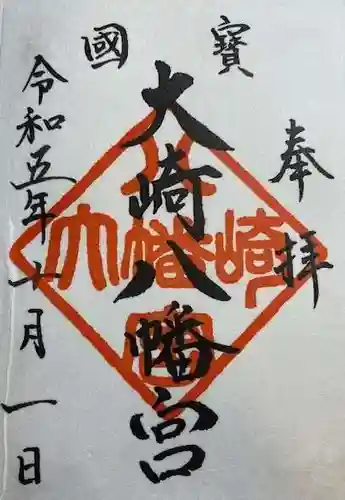 奉拝
寳
大崎八幡宮
國
令和五年十月一日
八
大幡崎
宮